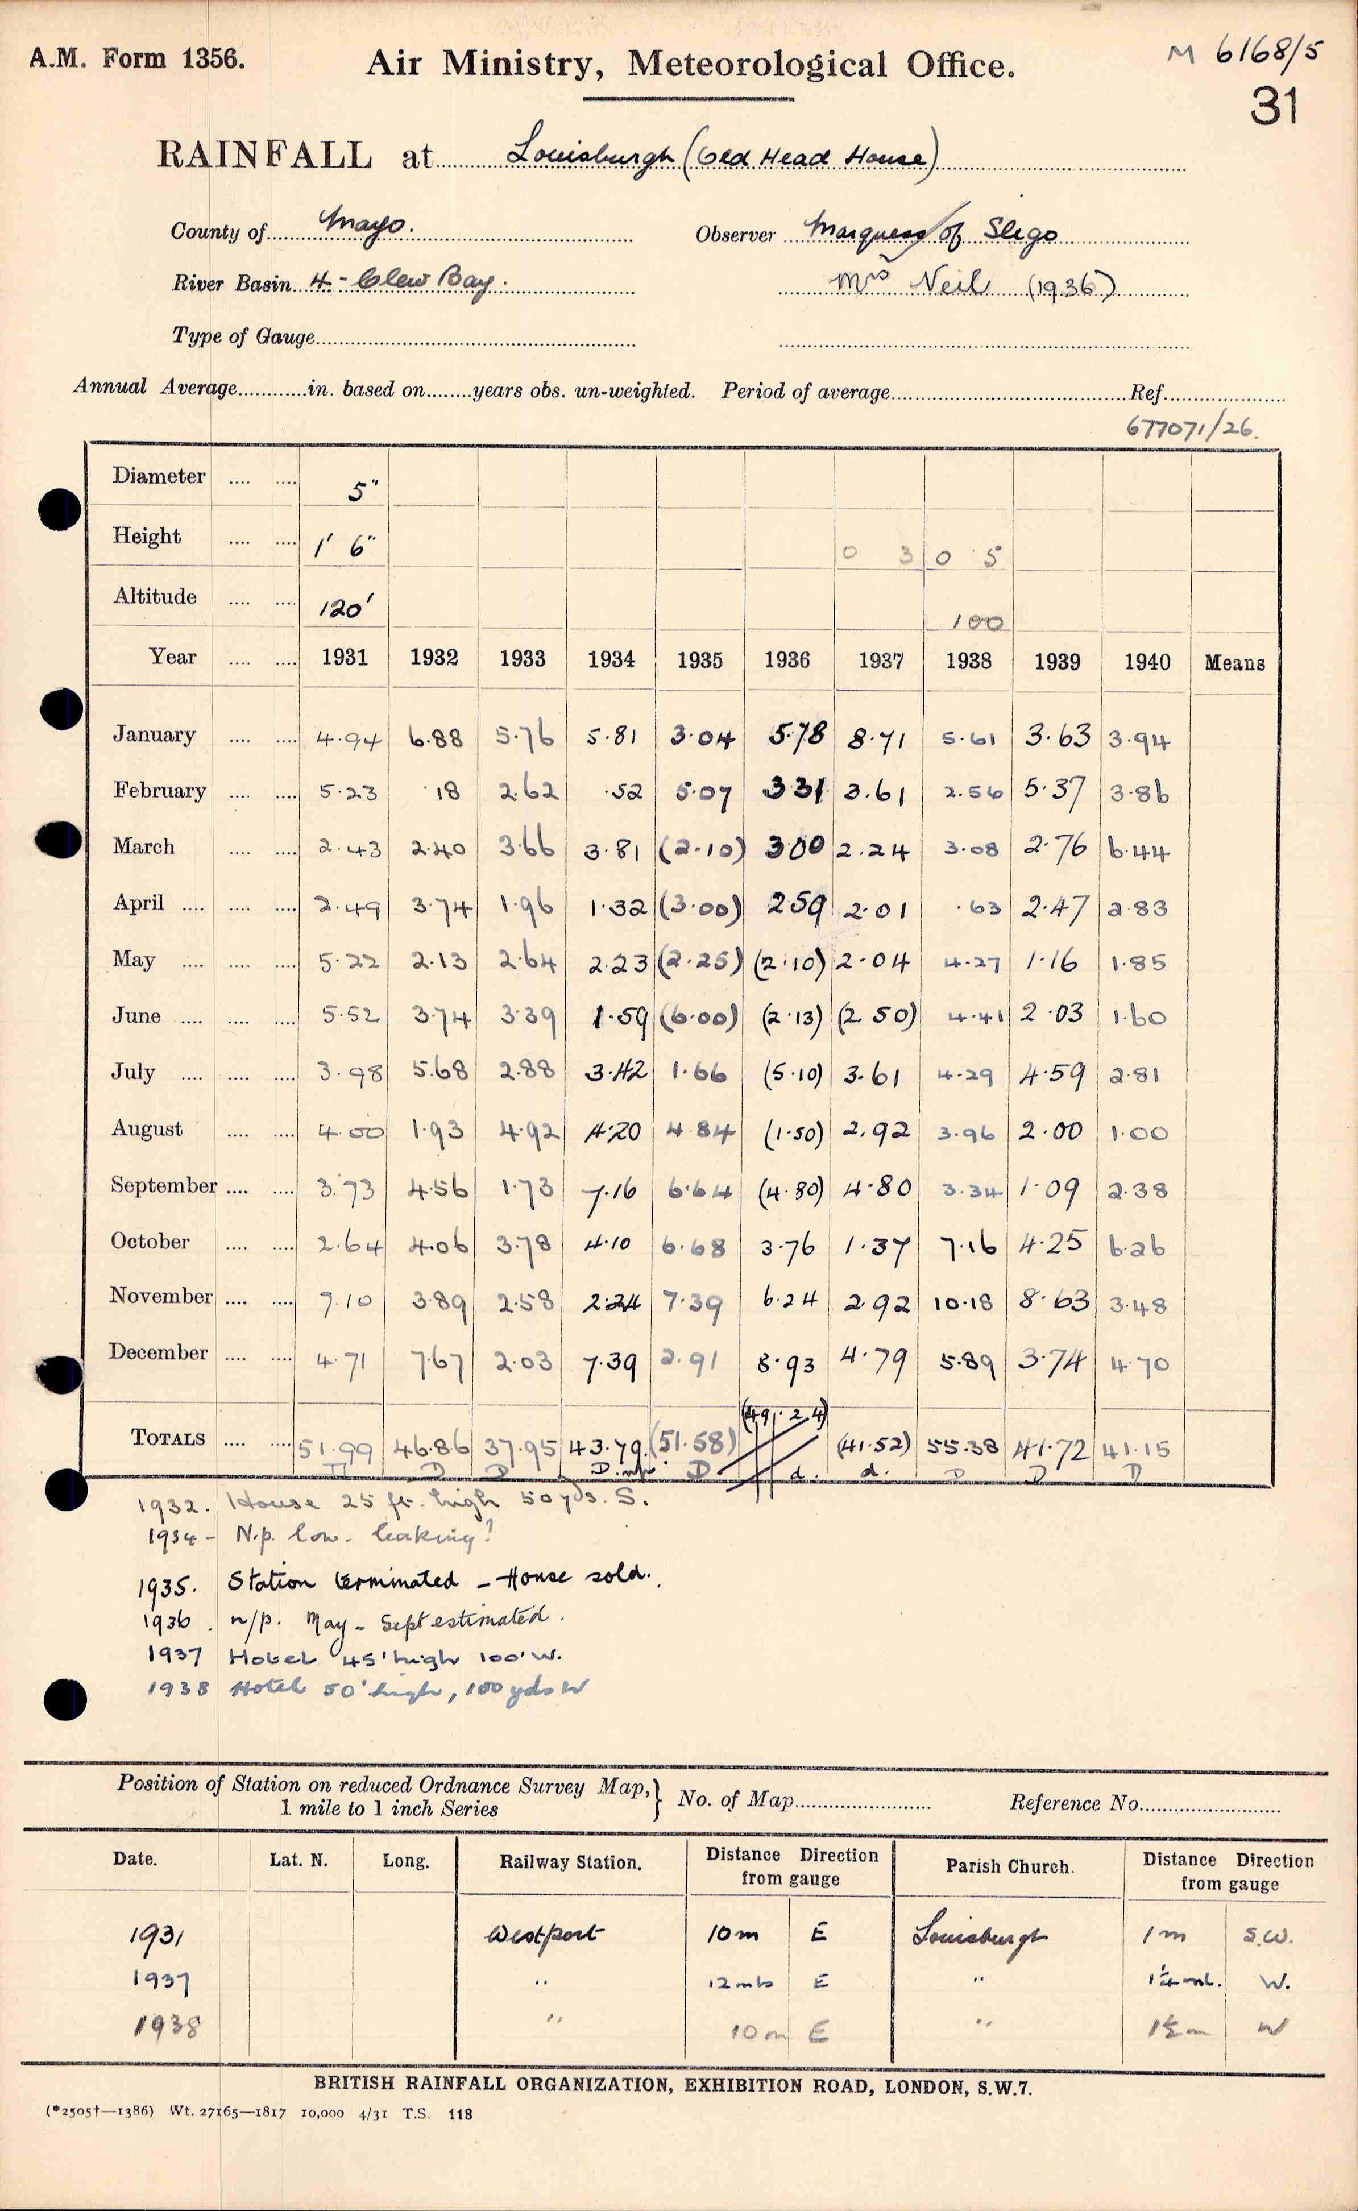 A.M. Form 1356.
Air Ministry, Meteorological Office.
M 6168/5
31
RAINFALL at Louisburgh (Old Head House)
County of Mayo. Observer Marquess of Sligo
River Basin 4 - Clew Bay. Mrs Neil (1936)
Type of Gauge
Annual Average in. based on years obs. un-weighted. Period of average Ref.
677071/26.
Diameter 5"
Height 1' 6" 0 3 0 5
Altitude 120' 100
Year 1931 1932 1933 1934 1935 1936 1937 1938 1939 1940 Means
January 4.94 6.88 5.76 5.81 3.04 5.78 8.71 5.61 3.63 3.94
February 5.23 .18 2.62 .52 5.07 3.31 3.61 2.56 5.37 3.86
March 2.43 2.40 3.66 3.81 (2.10) 3.00 2.24 3.08 2.76 6.44
April 2.49 3.74 1.96 1.32 (3.00) 2.59 2.01 .63 2.47 2.83
May 5.22 2.13 2.64 2.23 (2.25) (2.10) 2.04 4.27 1.16 1.85
June 5.52 3.74 3.39 1.59 (6.00) (2.13) (2.50) 4.41 2.03 1.60
July 3.98 5.68 2.88 3.42 1.66 (5.10) 3.61 4.29 4.59 2.81
August 4.00 1.93 4.92 4.20 4.84 (1.50) 2.92 3.96 2.00 1.00
September 3.73 4.56 1.73 7.16 6.64 (4.80) 4.80 3.34 1.09 2.38
October 2.64 4.06 3.78 4.10 6.68 3.76 1.37 7.16 4.25 6.26
November 7.10 3.89 2.58 2.24 7.39 6.24 2.92 10.18 8.63 3.48
December 4.71 7.67 2.03 7.39 2.91 8.93 4.79 5.89 3.74 4.70
TOTALS 51.99 46.86 37.95 43.79 (51.58) (49.24) (41.52) 55.38 41.72 41.15
D D D D. n/p. D d. d. D D D
1932. House 25 ft. high 50 yds. S.
1934 - N.p. low. leaking?
1935. Station terminated - House sold.
1936. n/p. May - Sept estimated.
1937 Hotel 45' high 100' W.
1938 Hotel 50' high, 100 yds W
Position of Station on reduced Ordnance Survey Map,} No. of Map Reference No.
1 mile to 1 inch Series
Date. Lat. N. Long. Railway Station. Distance Direction from gauge Parish Church. Distance Direction from gauge
1931 Westport 10m E Louisburgh 1m S.W.
1937 " 12 mls E " 1¼ ml. W.
1938 " 10 m E " 1½ m W
BRITISH RAINFALL ORGANIZATION, EXHIBITION ROAD, LONDON, S.W.7.
(*2505†—1386) Wt. 27165—1817 10,000 4/31 T.S. 118